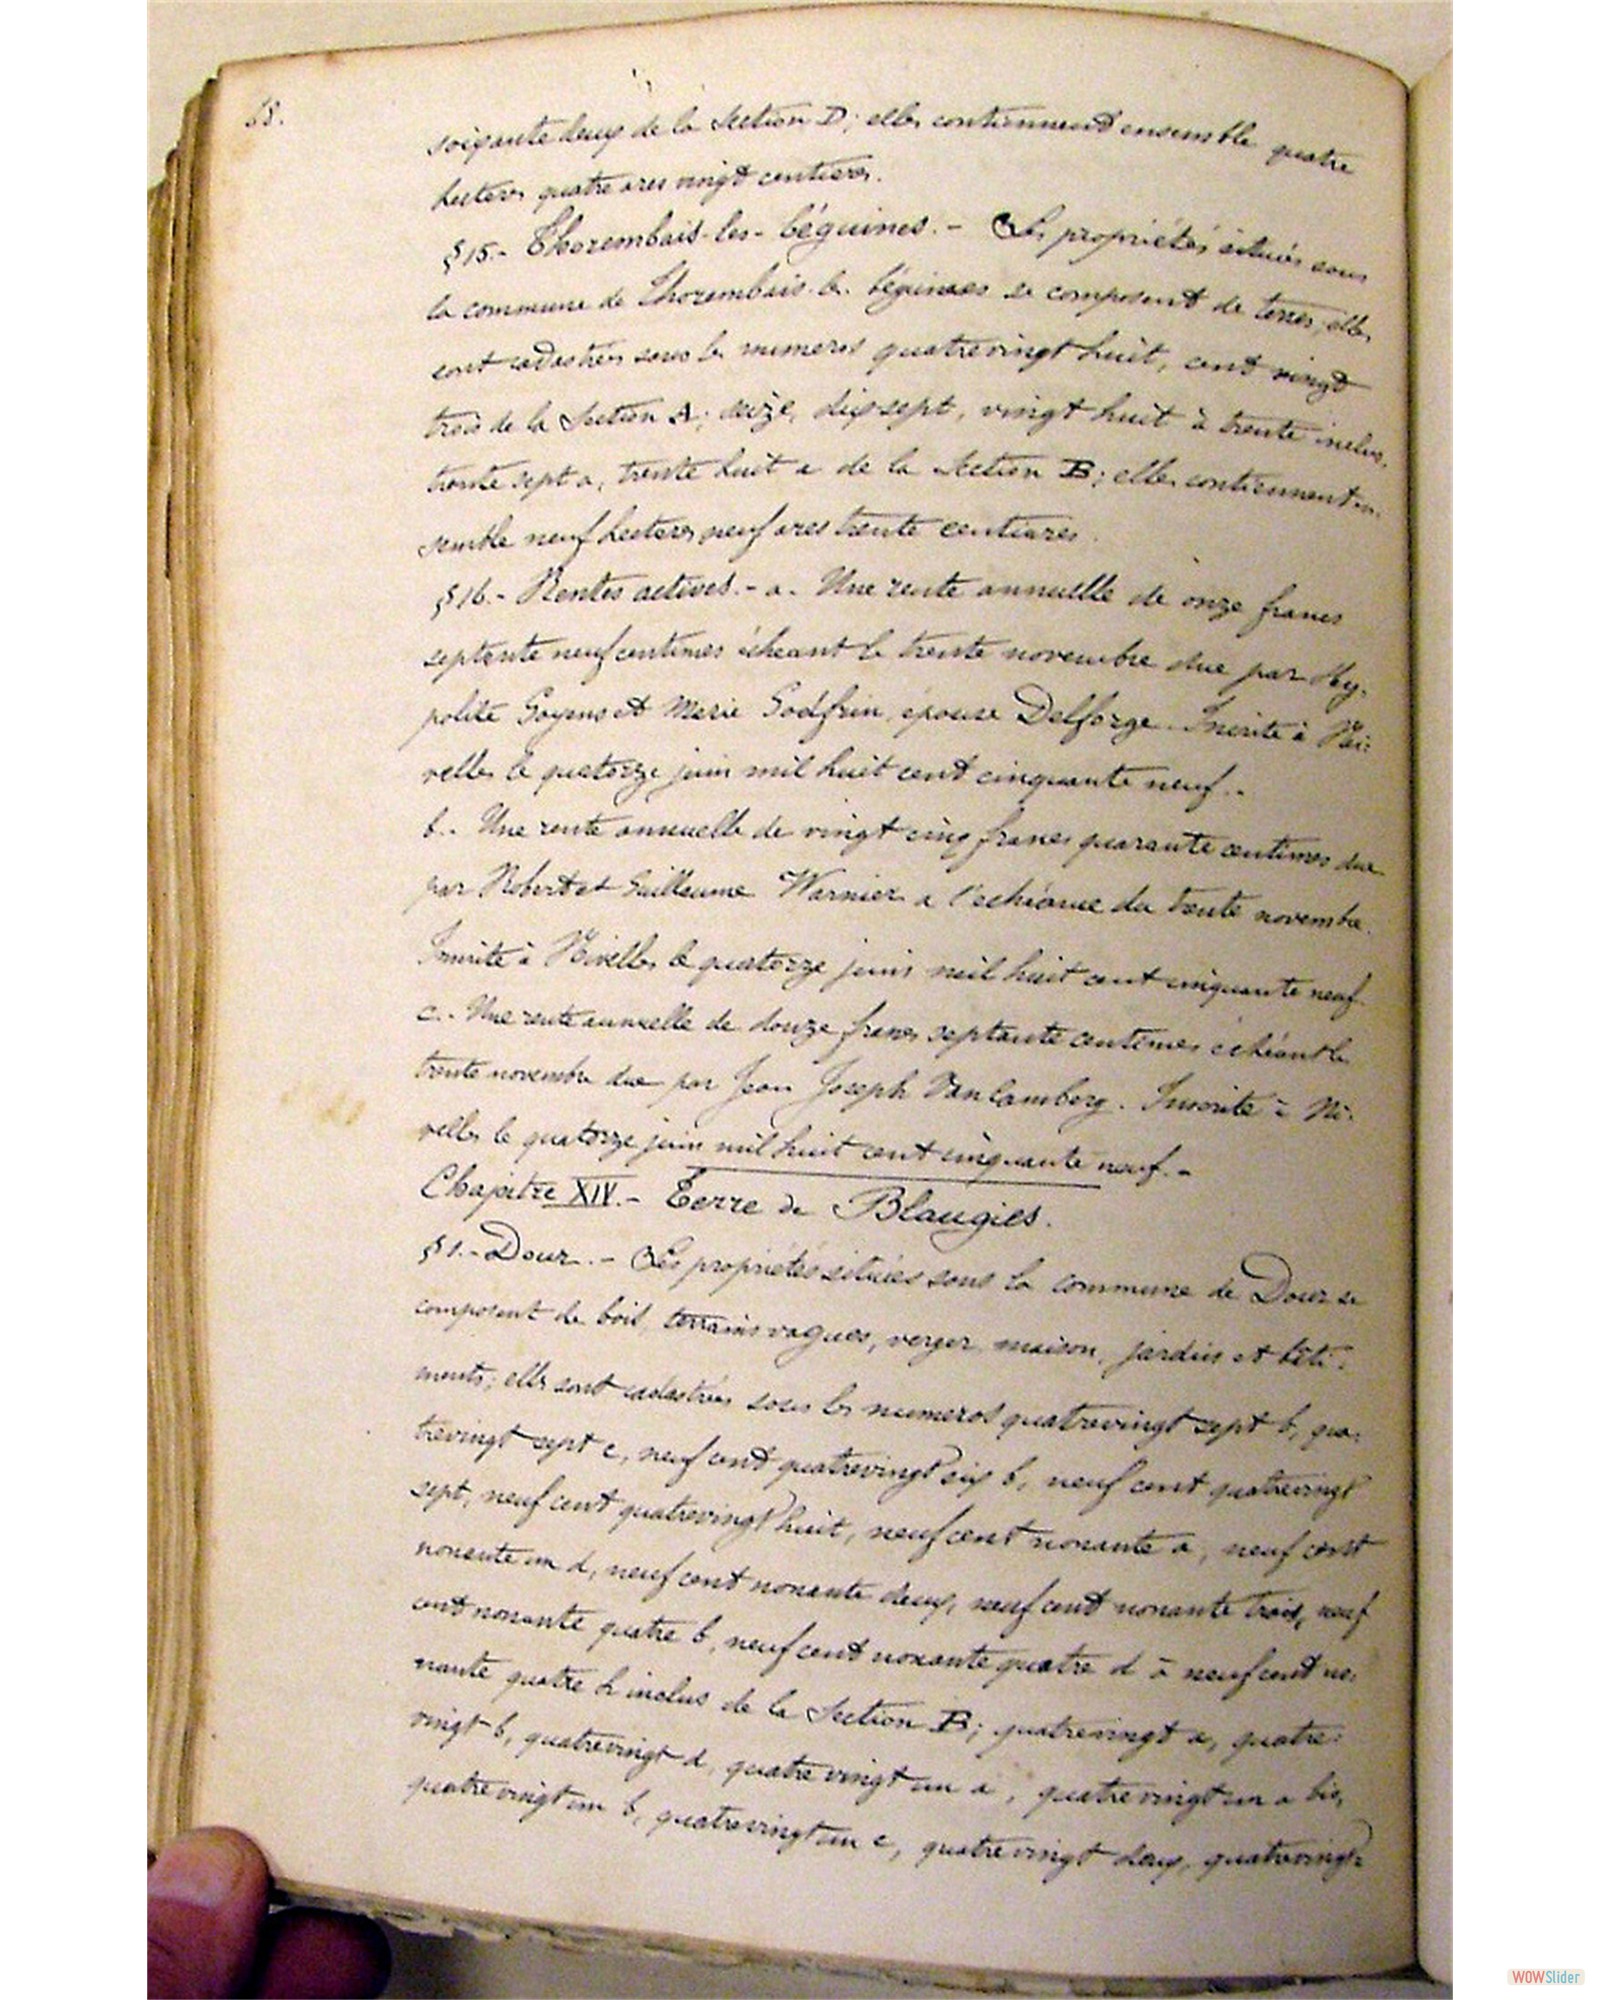 58.
soixante deux de la Section D; elles contiennent ensemble quatre
hectares quatre ares vingt centiares.
§ 15.- Thorembais-les-béguines. - Les propriétés situées sous
la commune de Thorembais-les-béguines se composent de terres; elles
sont cadastrées sous les numeros quatrevingt huit, cent vingt
trois de la Section A; seize, dix sept, vingt huit à trente inclus,
trente sept a, trente huit a de la Section B; elles contiennent en-
semble neuf hectares neuf ares trente centiares.
§ 16.- Rentes actives. - a. Une rente annuelle de onze francs
septante neuf centimes échéant le trente novembre due par Hy-
polite Goyens et Marie Godfrin, épouse Delforge. Inscrite à Ni-
velles le quatorze juin mil huit cent cinquante neuf. -
b. - Une rente annuelle de vingt cinq francs quarante centimes due
par Robert et Guillaume Warnier a l'echéance du trente novembre.
Inscrite à Nivelles le quatorze juin mil huit cent cinquante neuf
c. - Une rente annuelle de douze francs septante centimes échéant le
trente novembre due par Jean Joseph Van Camberg. Inscrite à Ni-
velles le quatorze juin mil huit cent cinquante neuf. -
Chapitre XIV. - Terre de Blaugies.
§ 1. - Dour. - Les propriétés situées sous la commune de Dour se
composent de bois, terrains vagues, verger, maison, jardins et bâti-
ments; elles sont cadastrées sous les numeros quatrevingt sept b, qua-
trevingt sept c, neuf cent quatrevingt six b, neuf cent quatrevingt
sept, neuf cent quatrevingt huit, neuf cent nonante a, neuf cent
nonante un d, neuf cent nonante deux, neuf cent nonante trois, neuf
cent nonante quatre b, neuf cent nonante quatre d à neuf cent no-
nante quatre h inclus de la Section B; quatrevingt a, quatre-
vingt b, quatrevingt d, quatre vingt un a, quatre vingt un a bis,
quatre vingt un b, quatrevingt un c, quatre vingt deux, quatrevingt-
WOWSlider